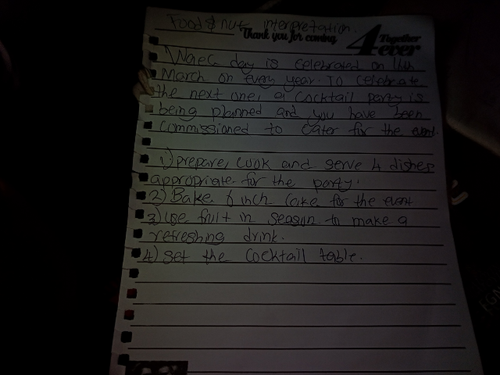 Food & nut interpretation.
Thank you for coming
4 Together
ever
Waec day is celebrated on 16th
March on every year. To celebrate
the next one, a cocktail party is
being planned and you have been
commissioned to cater for the
1) prepare, cook and serve 4 dishes
appropriate for the party.
2) Bake 6 inch cake for the event
3) use fruit in season to make a
refreshing drink.
4) set the cocktail table.